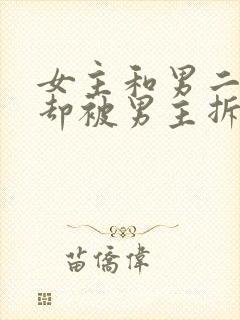 女主和男二
却被男主拆
苗僑偉